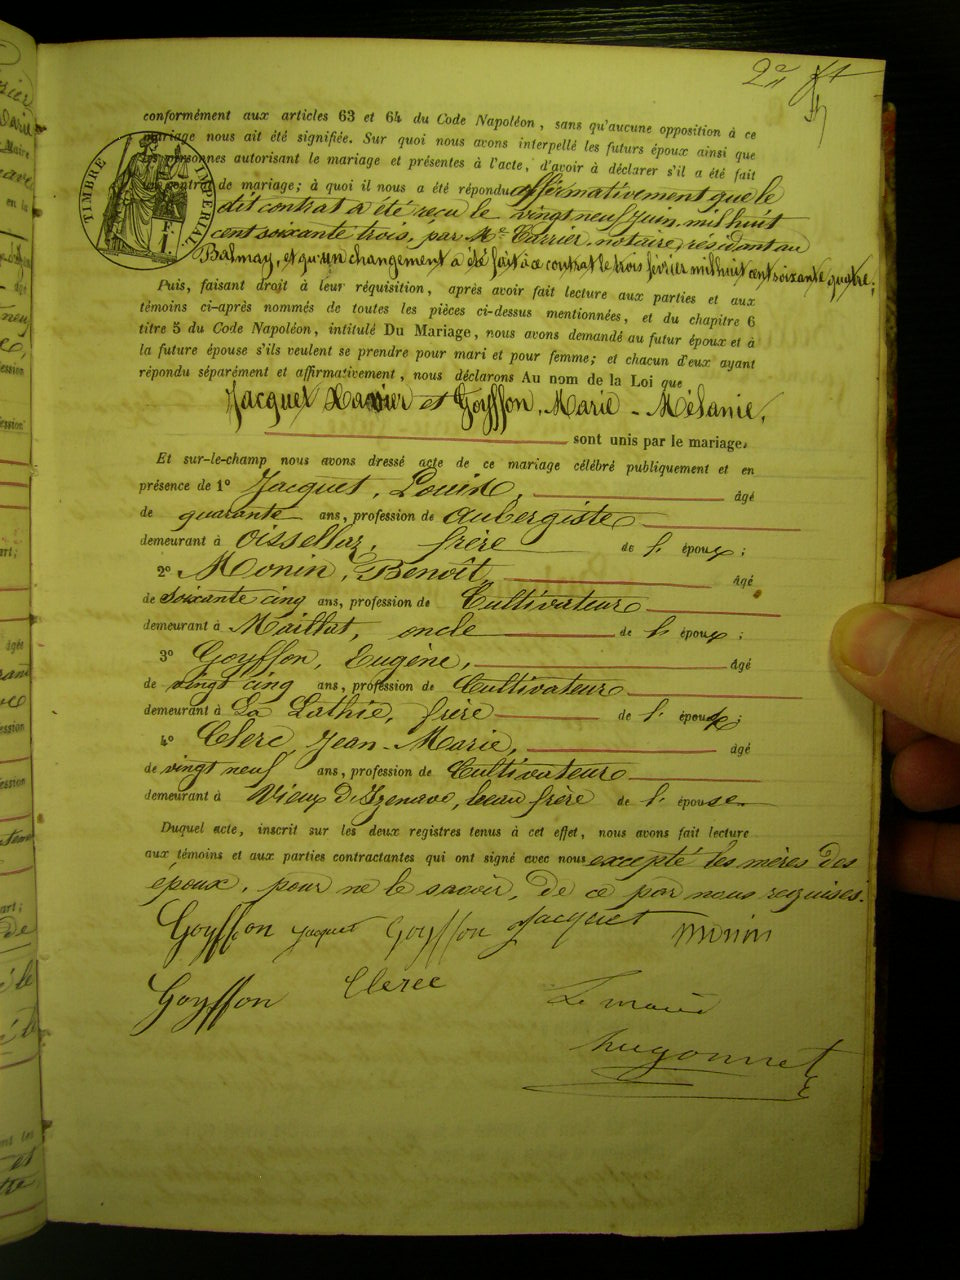 2e
conformément aux articles 63 et 64 du Code Napoléon, sans qu'aucune opposition à ce
mariage nous ait été signifiée. Sur quoi nous avons interpellé les futurs époux ainsi que
les personnes autorisant le mariage et présentes à l'acte, d'avoir à déclarer s'il a été fait
un contrat de mariage; à quoi il nous a été répondu affirmativement que le
dit contrat a été reçu le vingt neuf Juin, mil huit
cent soixante trois, par Me Carrier, notaire, résidant au
Balmay, et qu'un changement a été fait à ce contrat le trois février mil huit cent soixante quatre;
TIMBRE IMPÉRIAL
Puis, faisant droit à leur réquisition, après avoir fait lecture aux parties et aux
témoins ci-après nommés de toutes les pièces ci-dessus mentionnées, et du chapitre 6
titre 5 du Code Napoléon, intitulé Du Mariage, nous avons demandé au futur époux et à
la future épouse s'ils veulent se prendre pour mari et pour femme; et chacun d'eux ayant
répondu séparément et affirmativement, nous déclarons Au nom de la Loi que
Jacquet Xavier et Goyffon, Marie - Mélanie,
sont unis par le mariage.
Et sur-le-champ nous avons dressé acte de ce mariage célébré publiquement et en
présence de 1° Jacquet, Louis, âgé
de quarante ans, profession de Aubergiste
demeurant à Oissellaz, frère de l. époux;
2° Monin, Benoît, âgé
de Soixante cinq ans, profession de Cultivateur
demeurant à Maillat, oncle de l. époux;
3° Goyffon, Eugène, âgé
de vingt cinq ans, profession de Cultivateur
demeurant à La Lathie, frère de l. épouse;
4° Clerc Jean-Marie, âgé
de vingt neuf ans, profession de Cultivateur
demeurant à Vieux D'Izenave, beau frère de l. épouse
Duquel acte, inscrit sur les deux registres tenus à cet effet, nous avons fait lecture
aux témoins et aux parties contractantes qui ont signé avec nous excepté les mères des
époux, pour ne le savoir, de ce par nous requises.
Goyffon Jacquet Goyffon Jacquet monin
Goyffon Clerc Le maire
hugonnet